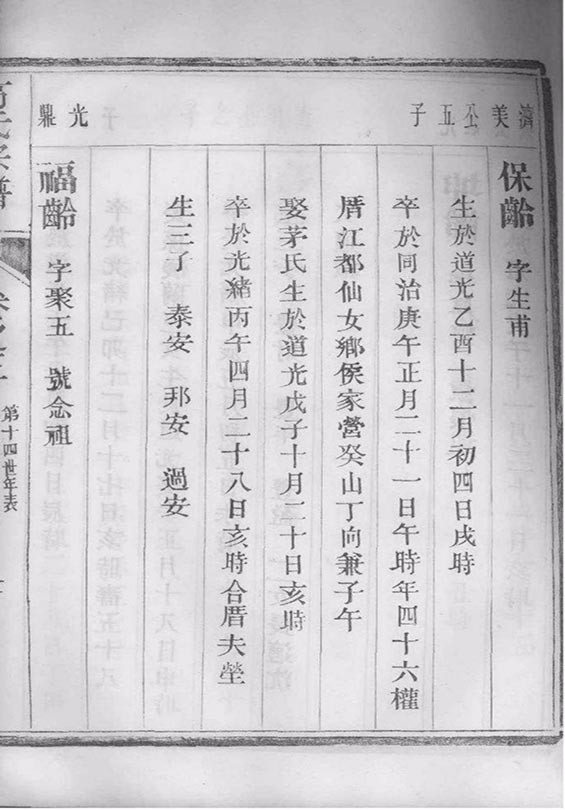 濟美公五子
保齡 字生甫
生於道光乙酉十二月初四日戌時
卒於同治庚午正月二十一日午時年四十六權
厝江都仙女鄉侯家營癸山丁向兼子午
娶茅氏生於道光戊子十月二十日亥時
卒於光緒丙午四月二十八日亥時合厝夫塋
生三了 泰安 邦安 過安
光鼎
福齡 字聚五 號念祖
氏宗譜
第十四世年表